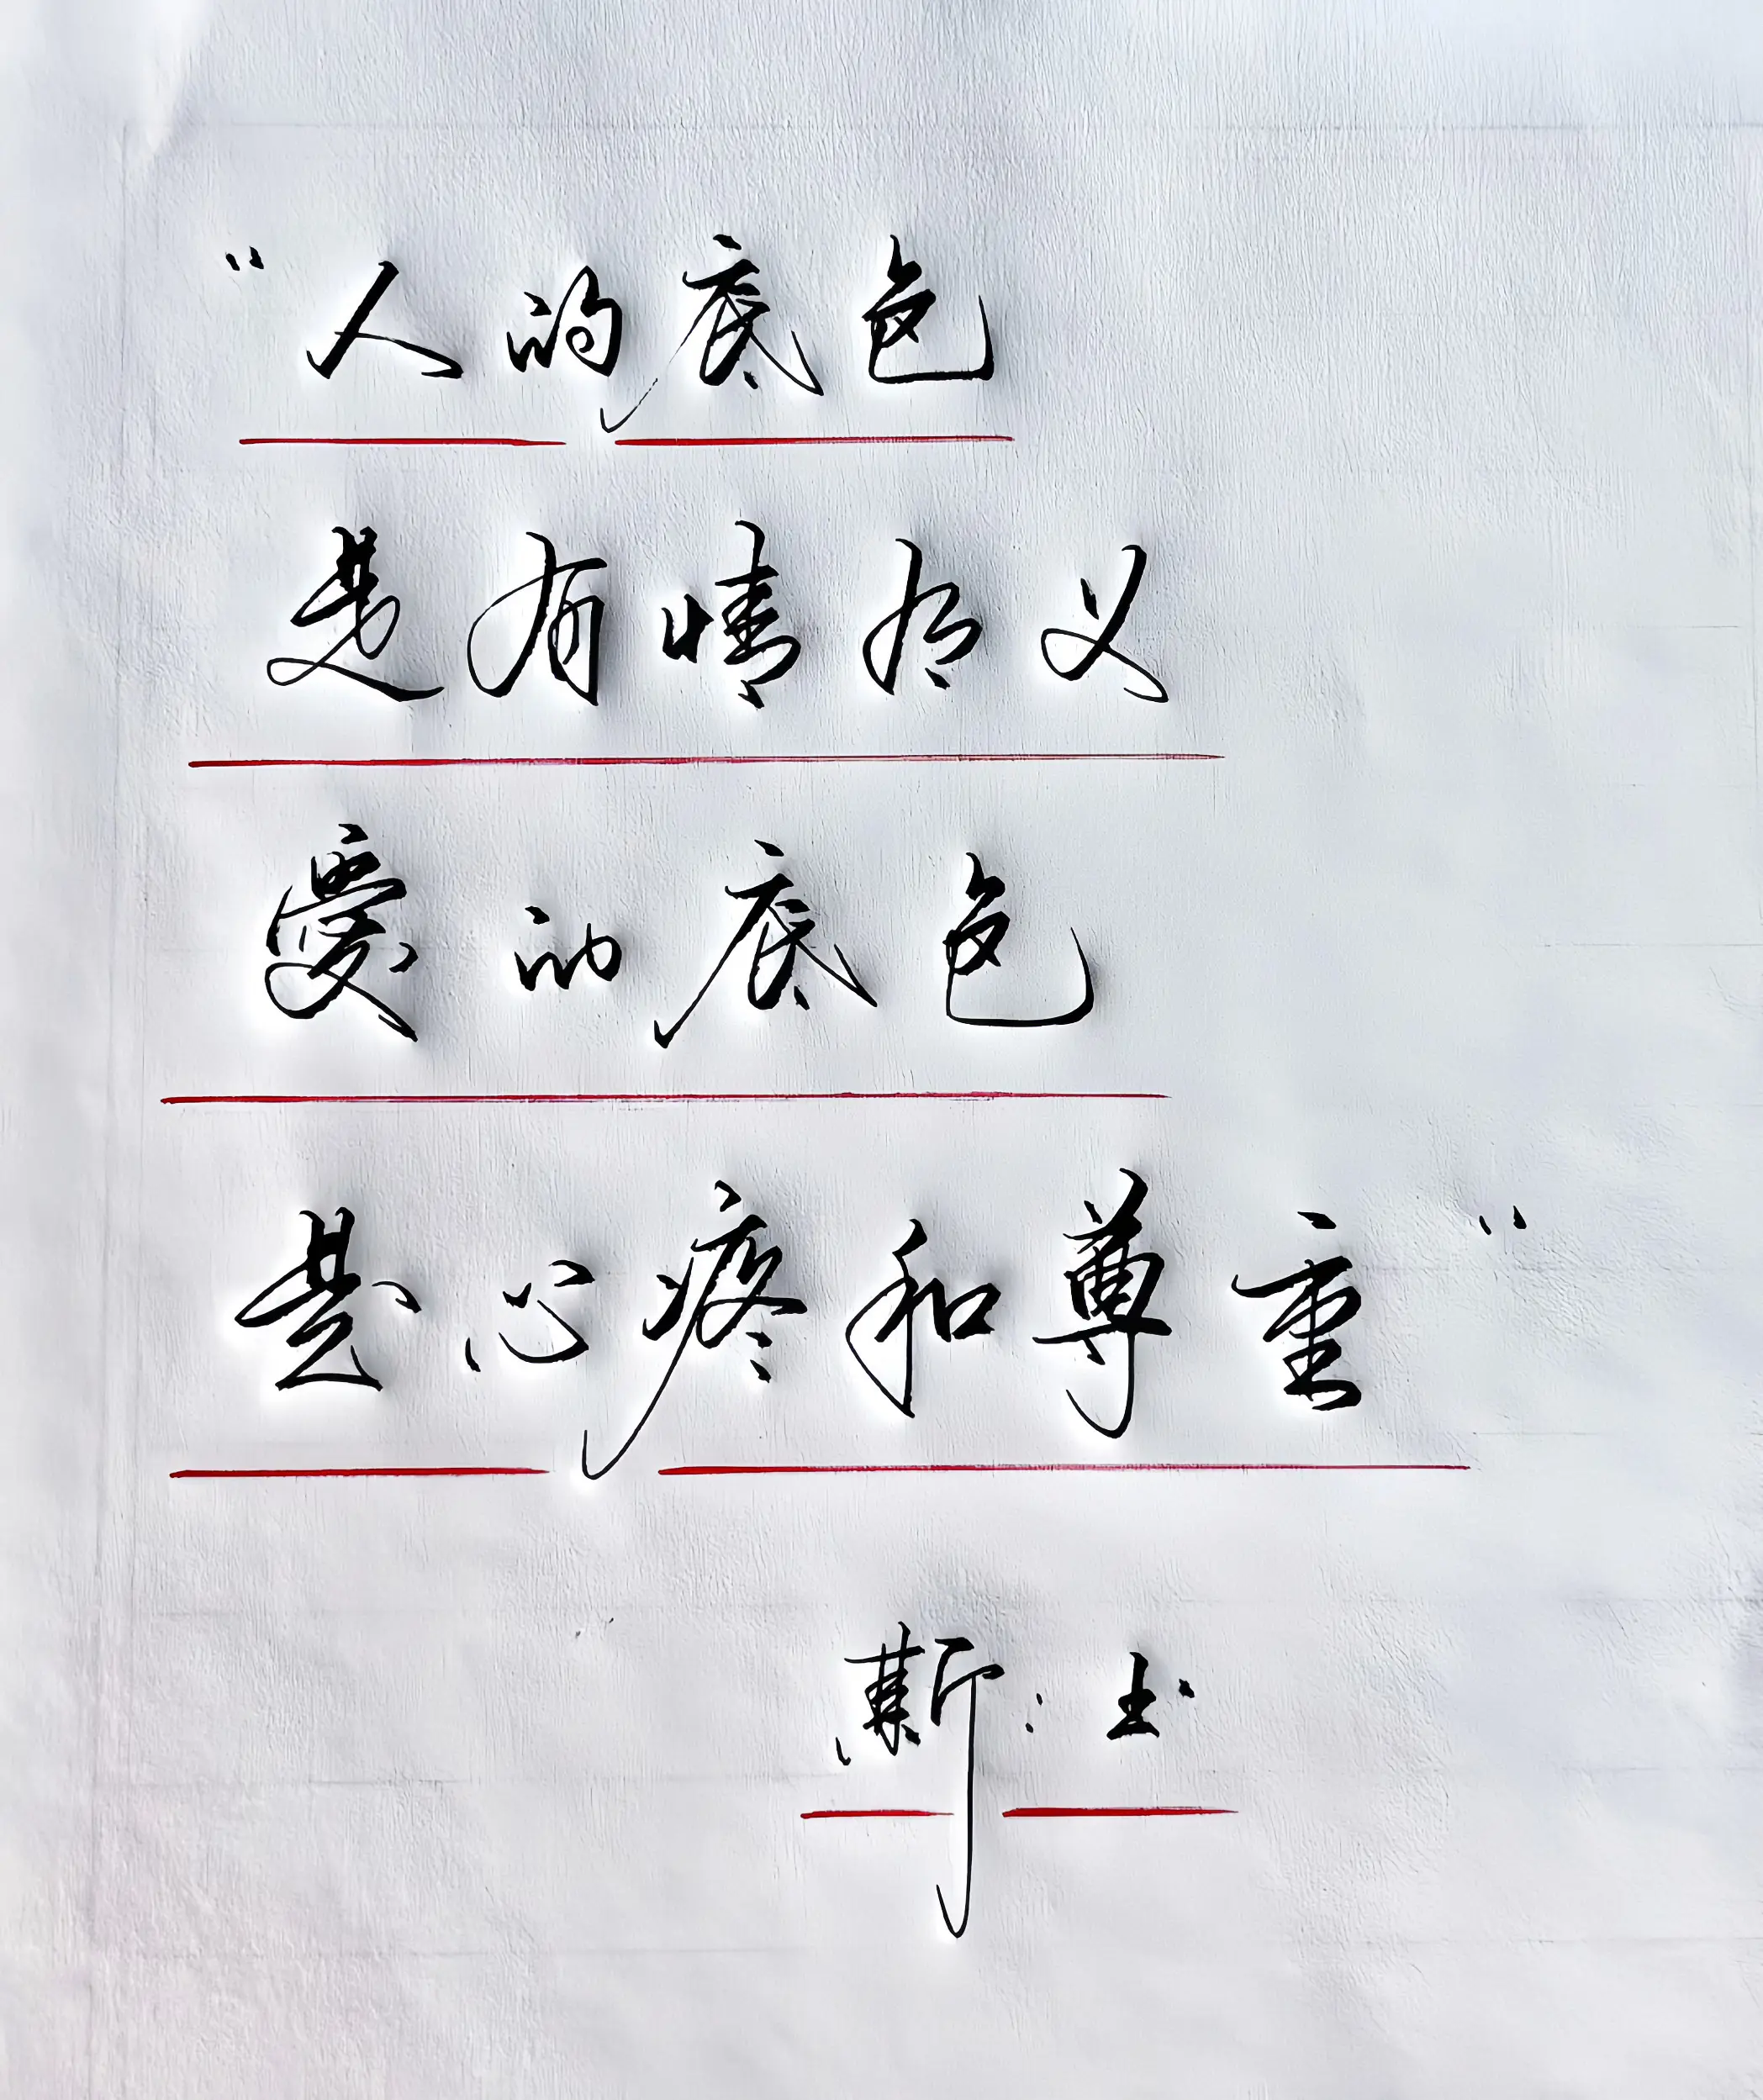 "人的底色
是有情有义
爱的底色
是心疼和尊重"
斯:书